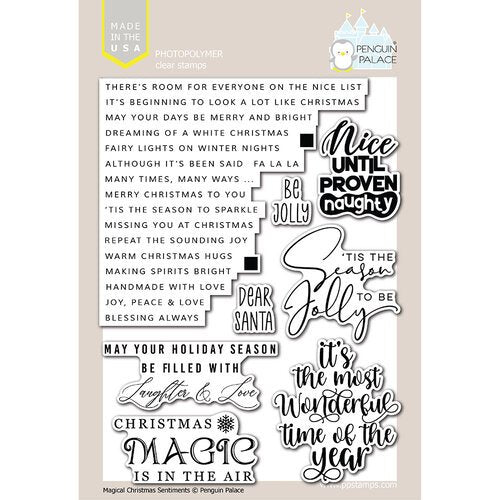 MADE
IN THE
USA
PHOTOPOLYMER
clear stamps
PENGUIN
PALACE
THERE'S ROOM FOR EVERYONE ON THE NICE LIST
IT'S BEGINNING TO LOOK A LOT LIKE CHRISTMAS
MAY YOUR DAYS BE MERRY AND BRIGHT
DREAMING OF A WHITE CHRISTMAS
FAIRY LIGHTS ON WINTER NIGHTS
ALTHOUGH IT'S BEEN SAID FA LA LA
MANY TIMES, MANY WAYS ...
MERRY CHRISTMAS TO YOU
'TIS THE SEASON TO SPARKLE
MISSING YOU AT CHRISTMAS
REPEAT THE SOUNDING JOY
WARM CHRISTMAS HUGS
MAKING SPIRITS BRIGHT
HANDMADE WITH LOVE
JOY, PEACE & LOVE
BLESSING ALWAYS
Nice
UNTIL
PROVEN
naughty
Be
JOLLY
'TIS THE
Season
TO BE
Jolly
DEAR
SANTA
MAY YOUR HOLIDAY SEASON
BE FILLED WITH
Laughter & Love
it's
the most
Wonderful
time of the
year
CHRISTMAS
MAGIC
IS IN THE AIR
Magical Christmas Sentiments © Penguin Palace
www.ppstamps.com